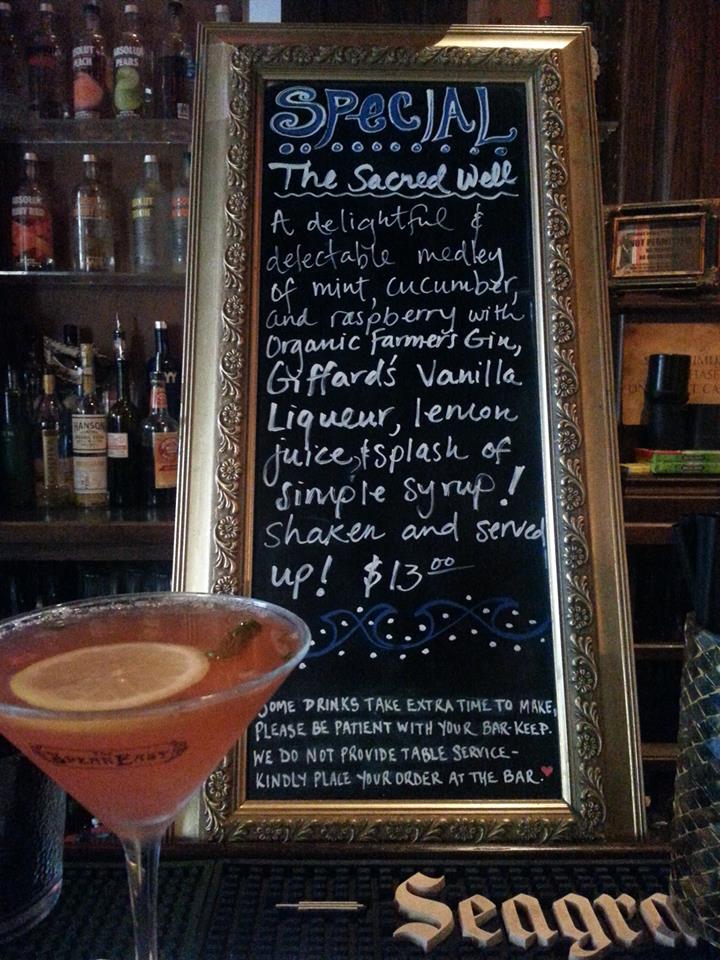 SPECIAL
The Sacred Well
A delightful &
delectable medley
of mint, cucumber,
and raspberry with
Organic Farmer's Gin,
Giffard's Vanilla
Liqueur, lemon
juice, & splash of
simple syrup!
shaken and served
up! $13.00
SOME DRINKS TAKE EXTRA TIME TO MAKE,
PLEASE BE PATIENT WITH YOUR BAR-KEEP.
WE DO NOT PROVIDE TABLE SERVICE-
KINDLY PLACE YOUR ORDER AT THE BAR.
ABSOLUT
PEARS
HANSON
NOT PERMITTED
The
SpeakEasy
Seagra